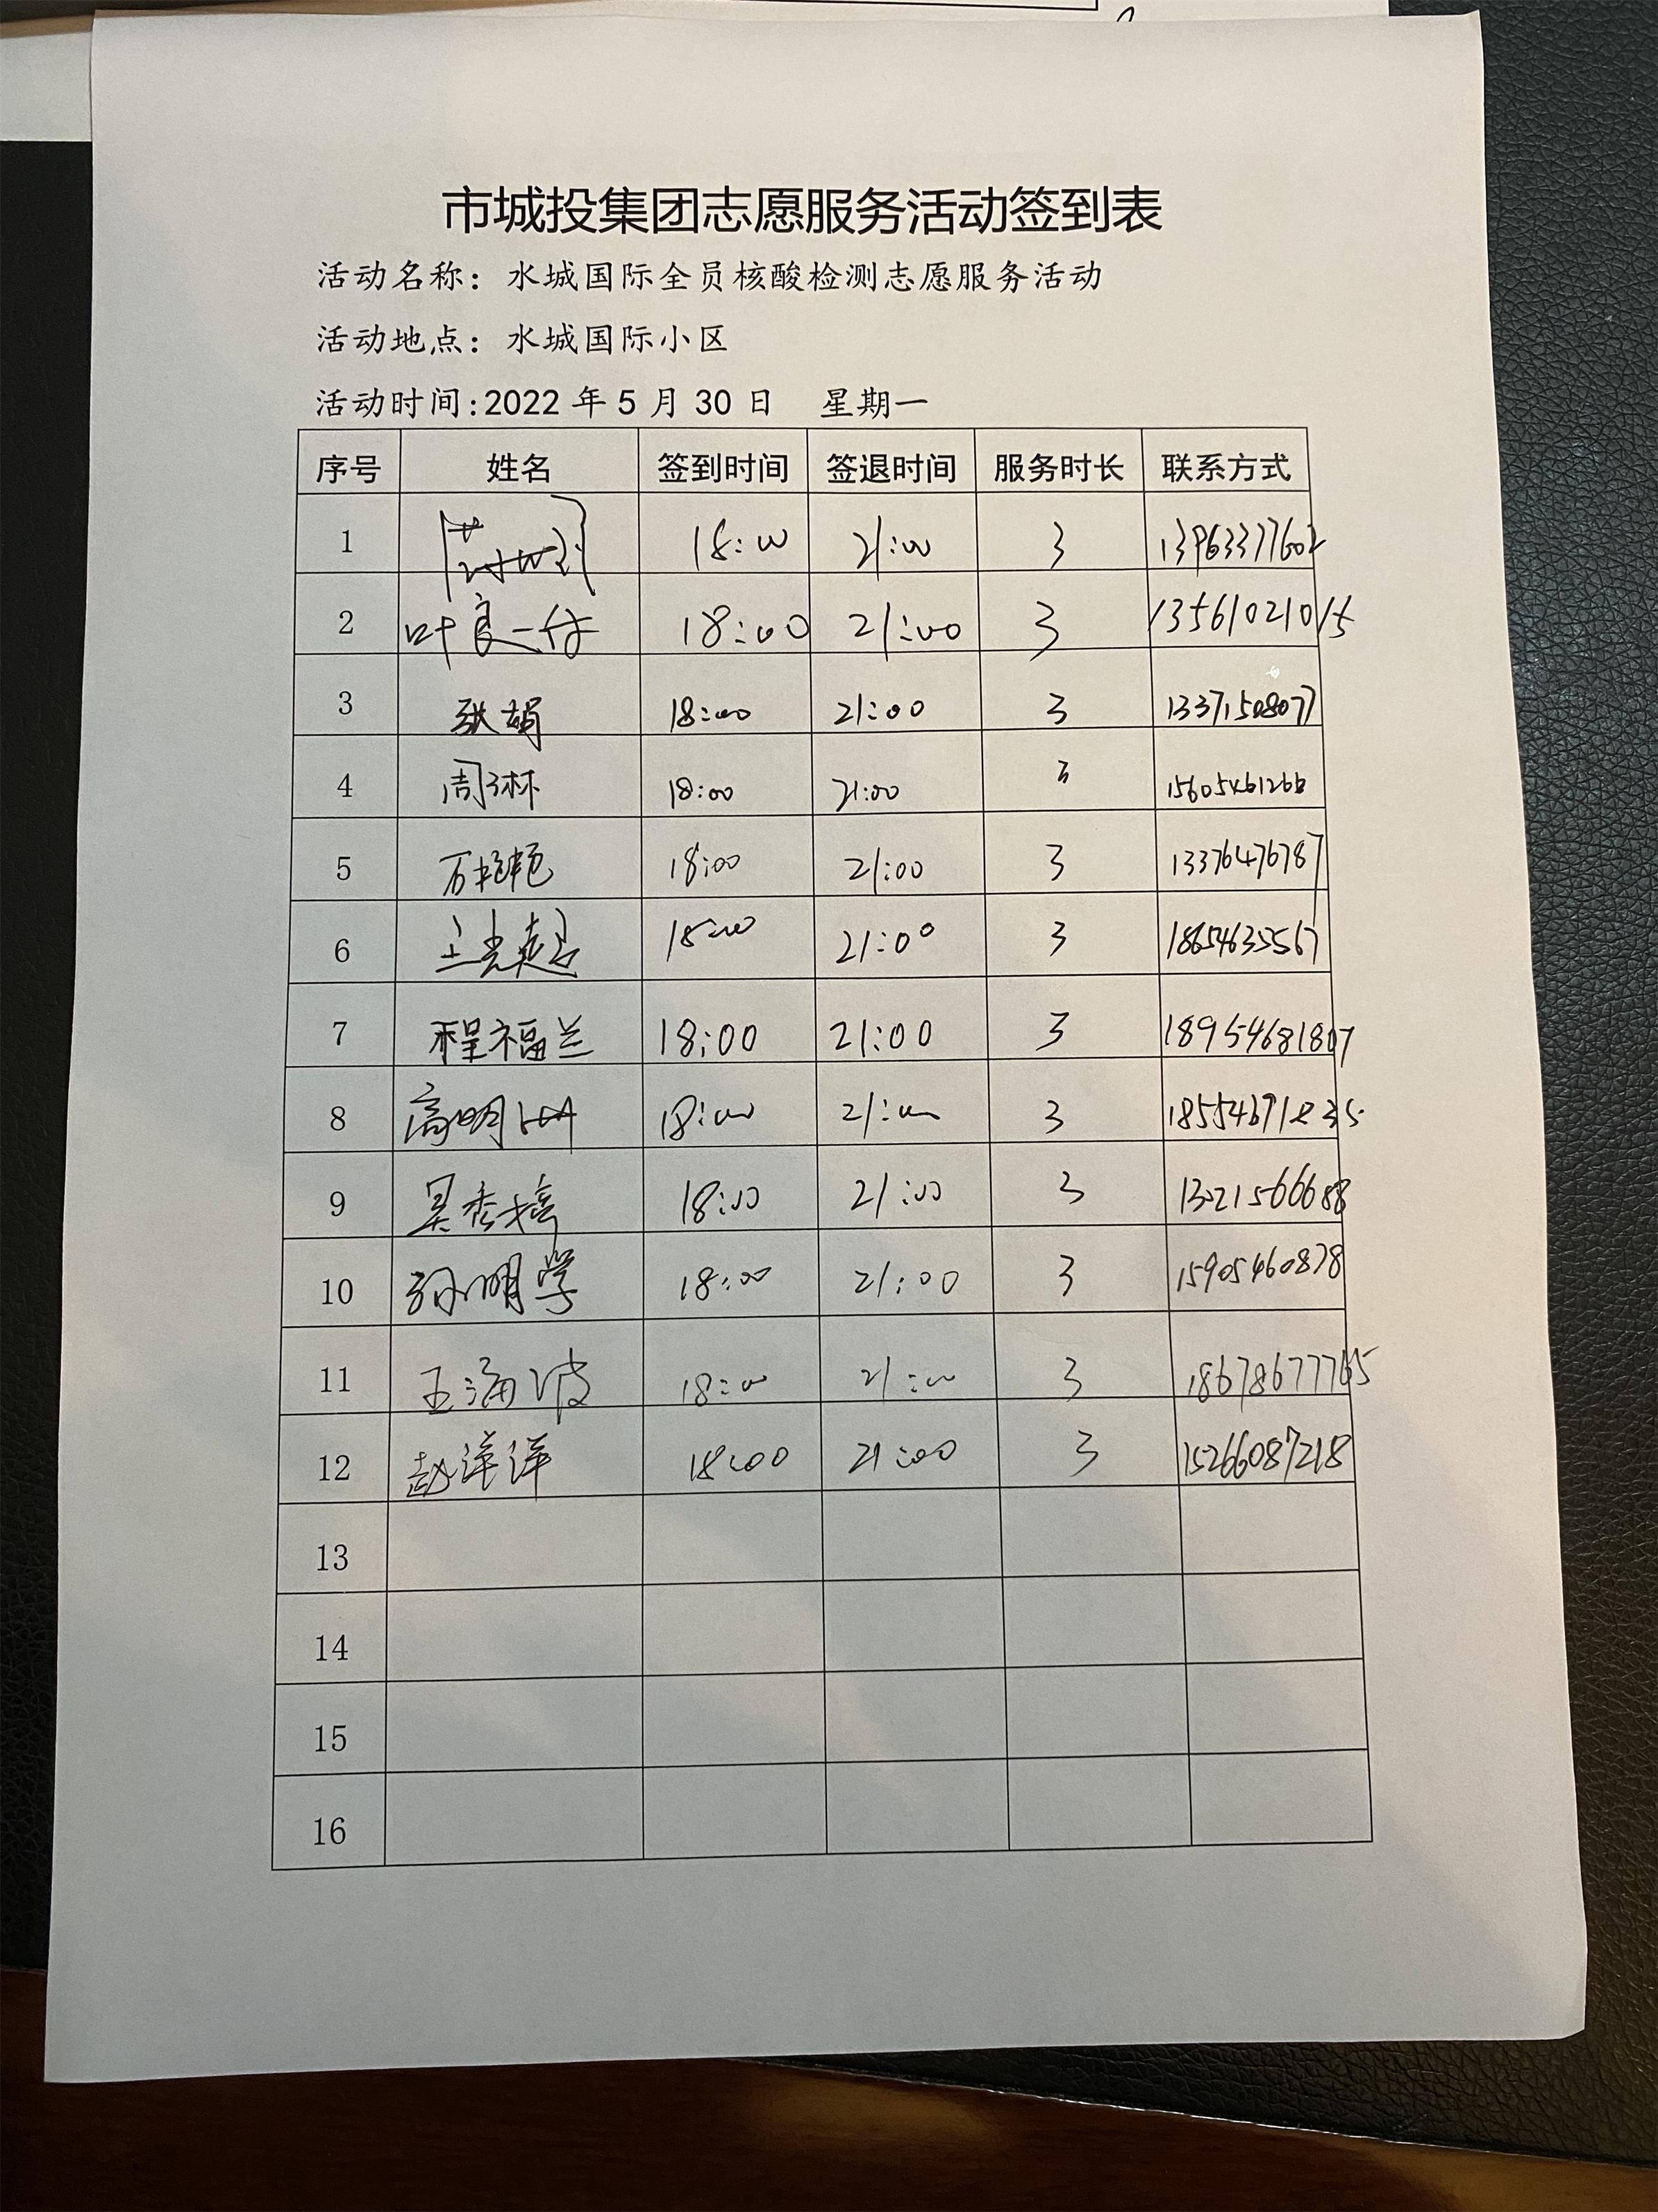 市城投集团志愿服务活动签到表
活动名称：水城国际全员核酸检测志愿服务活动
活动地点：水城国际小区
活动时间:2022 年 5 月 30 日 星期一
序号 姓名 签到时间 签退时间 服务时长 联系方式
1 18:00 21:00 3 13963377602
2 叶良一仔 18:00 21:00 3 13561021015
3 张娟 18:00 21:00 3 13371508077
4 周琳 18:00 21:00 3 15605461266
5 万艳艳 18:00 21:00 3 13376476787
6 王光超 18:00 21:00 3 18654635567
7 程福兰 18:00 21:00 3 18954681807
8 高明 18:00 21:00 3 18554671235
9 吴秀婷 18:00 21:00 3 13221566688
10 孙明学 18:00 21:00 3 15905460878
11 王海波 18:00 21:00 3 18678677765
12 赵洋洋 18:00 21:00 3 15266087218
13
14
15
16